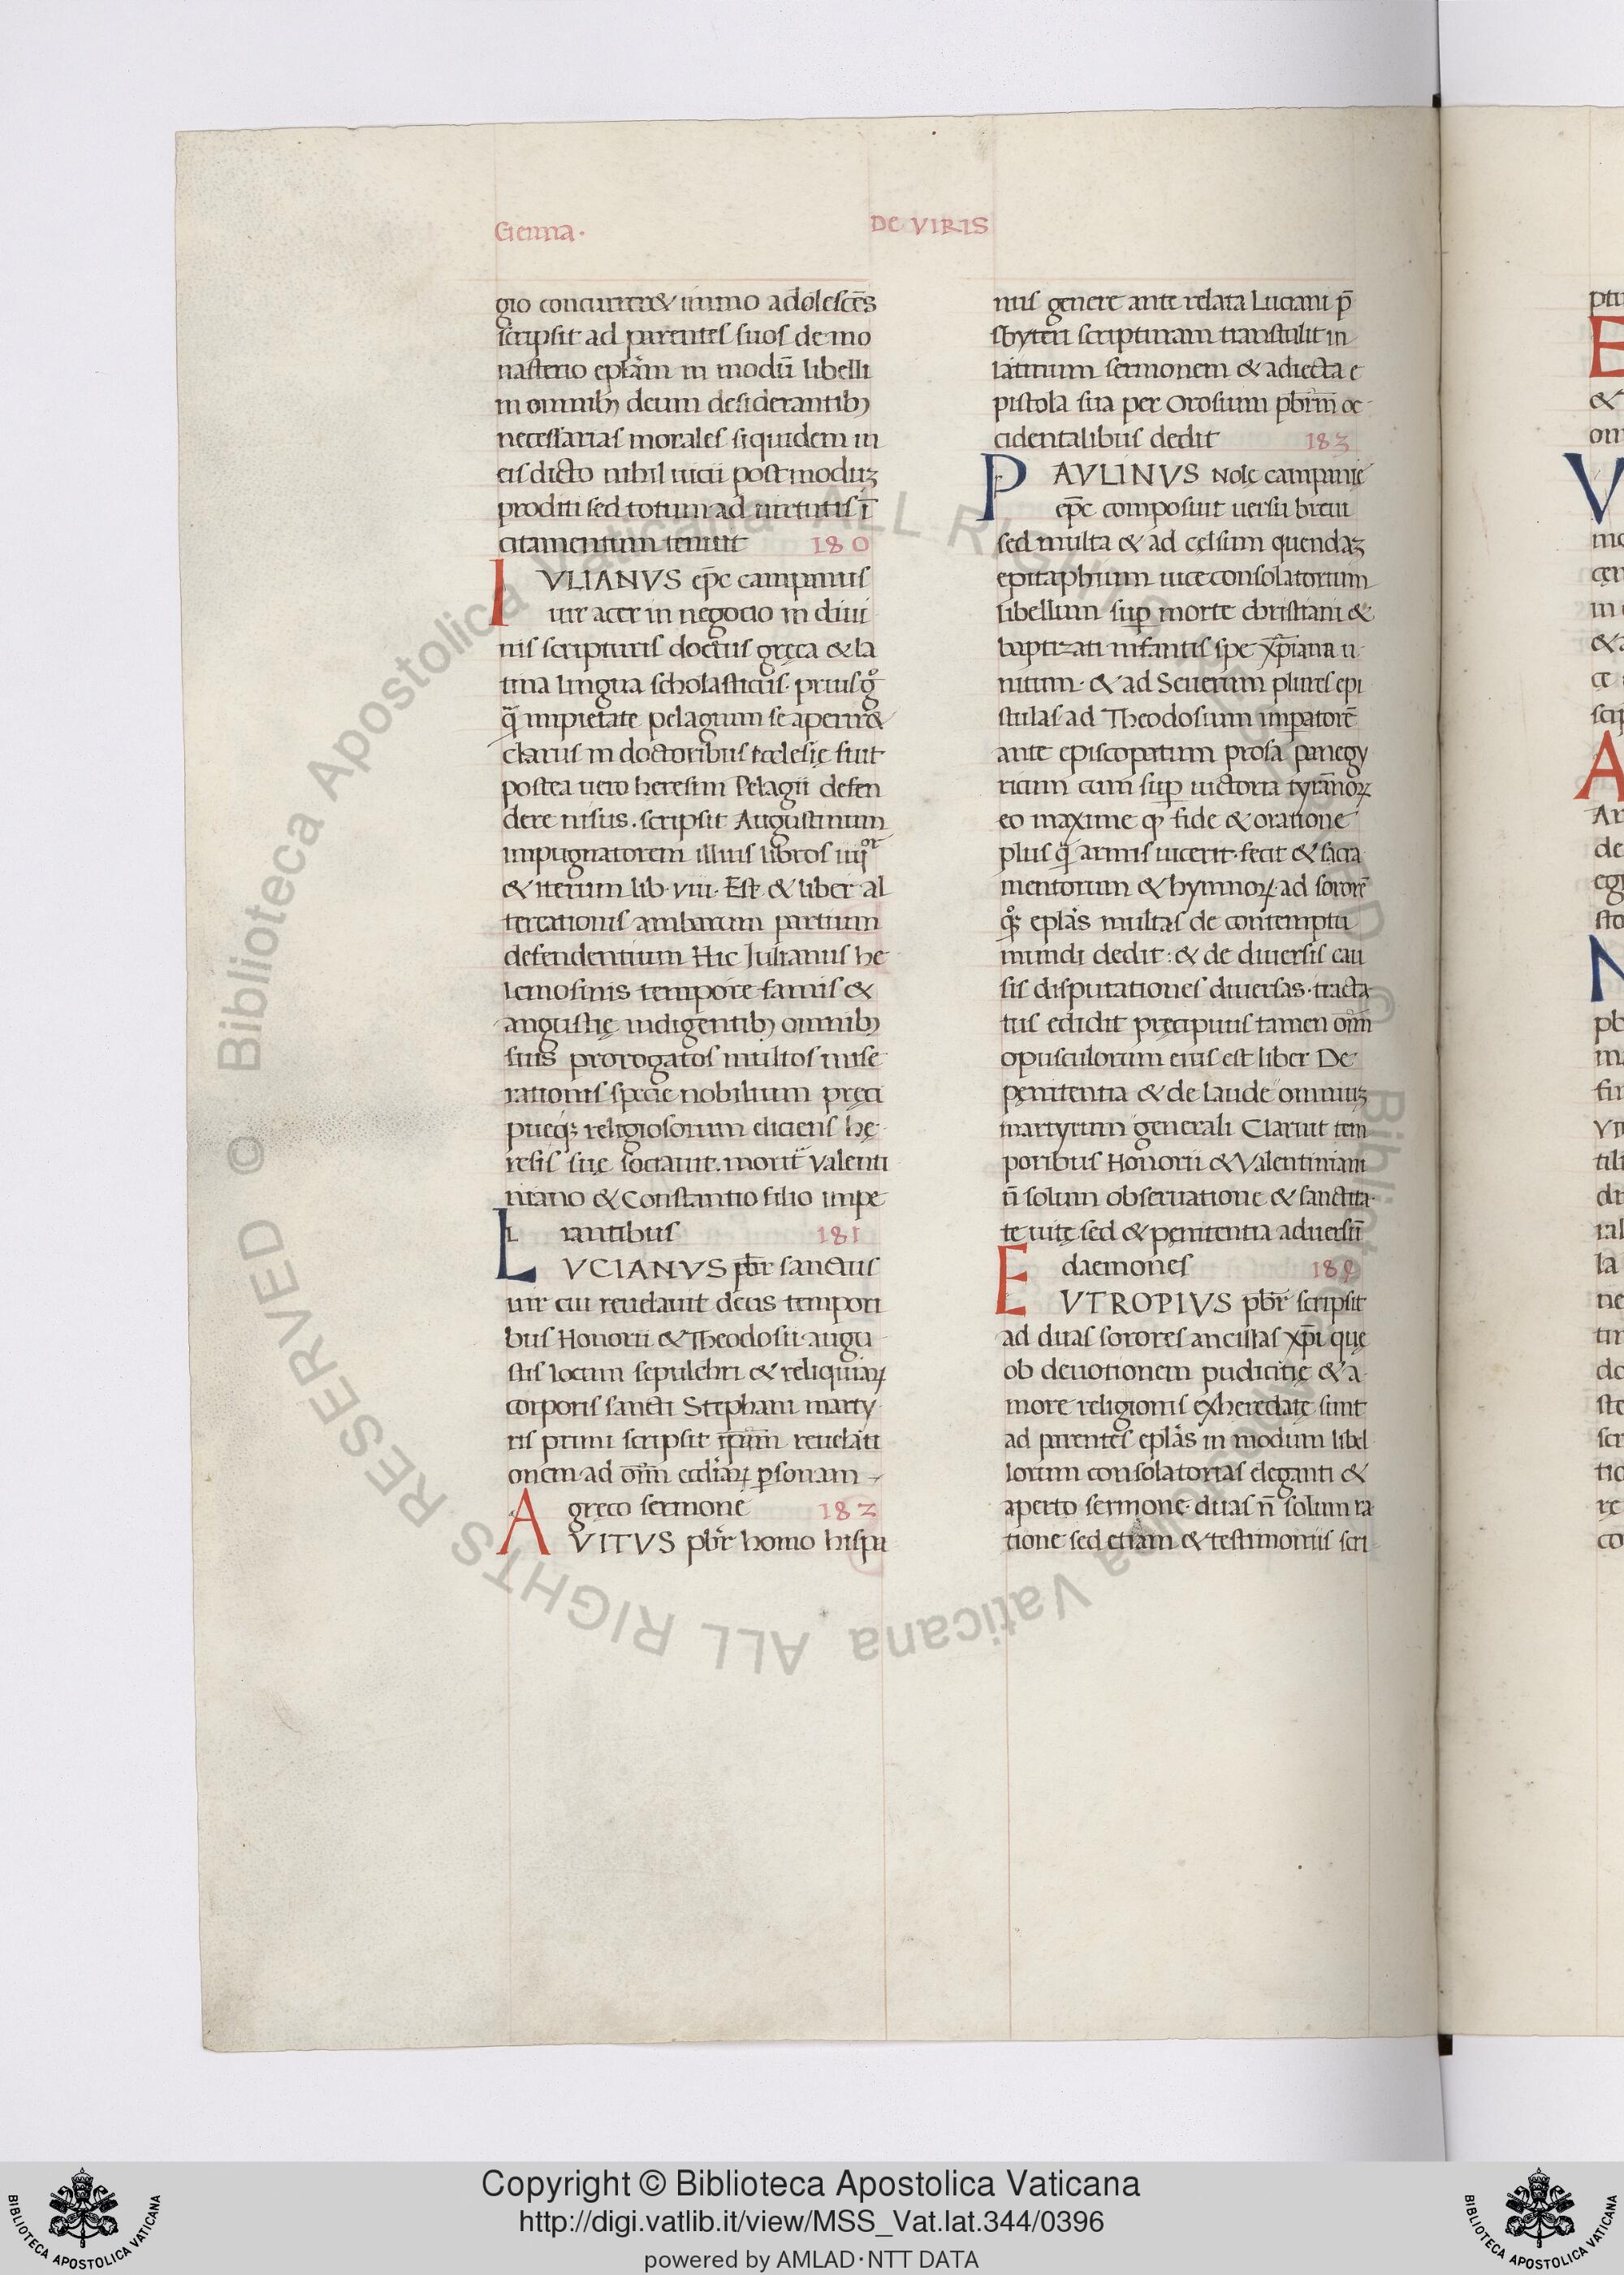 Genna·
DE VIRIS
gio concurreret immo adolescẽs
scripsit ad parentes suos de mo
nasterio eplãm in modũ libelli
in omnibꝫ deum desiderantibꝫ
necessarias morales siquidem in
eis dicto nihil uicii postmoduꝫ
proditi sed totum ad uirtutis ĩ
citamentum tenuit 180
IVLIANVS ep̃c campanus
uir acer in negocio in diui
nis scripturis doctus gręca & la
tina lingua scholasticus. prius g̊
q̃ impietate pelagium se aperir&
clarus in doctoribus ecclesię fuit
postea uero heresim Pelagii defen
dere nisus. scripsit Augustinum
impugnatorem illius libros iiiior
& iterum lib. viii. Est & liber al
tercationis ambarum partium
defendentium Hic Iulianus he
lemosinis tempore famis &
angustię indigentibꝫ omnibꝫ
suis prorogatos multos mise
rationis specie nobilium pręci
pueqꝫ religiosorum eliciens hę
resis suę sociauit. morit̃ Valenti
niano & Constantio filio impe
rantibus 181
LVCIANVS pbr̃ sanctus
uir cui reuelauit deus tempori
bus Honorii & Theodosii augu
stis locum sepulchri & reliquiaꝝ
corporis sancti Stephani marty
ris primi scripsit ip̃am reuelati
onem ad om̃m eccl̃iaꝝ ꝑsonam
gręco sermone 182
AVITVS pbr̃ homo hispa
nus genere ante relata Luciani p̃
sbyteri scripturam transtulit in
latinum sermonem & adiecta e
pistola sua per Orosium pbr̃m oc
cidentalibus dedit 183
PAVLINVS Nolę campanię
ep̃c composuit uersu breui
sed multa & ad cęlsum quendaꝫ
epitaphium uice consolatorium
libellum suꝑ morte christiani &
baptizati infantis spe xp̃iana u
nitum. & ad Seuerum plures epi
stulas ad Theodosium imperatorẽ
ante episcopatum prosa panegy
ricum cum suꝑ uictoria tyrãnoꝝ
eo maxime ꝙ fide & oratione
plus q̃ armis uicerit. fecit & sacra
mentorum & hymnoꝝ. ad sororẽ
qꝫ epl̃as multas de contemptu
mundi dedit: & de diuersis cau
sis disputationes diuersas. tracta
tus edidit pręcipuus tamen om̃
opusculorum eius est liber De
pęnitentia & de laude omniuꝫ
martyrum generali Claruit tem
poribus Honorii & Valentiniani
ñ solum obseruatione & sanctita
te uitę sed & pęnitentia aduersũ
daemones 184
EVTROPIVS pbr̃ scripsit
ad duas sorores ancillas xp̃i quę
ob deuotionem pudicitię & a
more religionis exheredatę sunt
ad parentes epl̃as in modum libel
lorum consolatorias eleganti &
aperto sermone duas ñ solum ra
tione sed etiam & testimoniis scri
ptu
E
&
om
V
in
&
scri
A
Ar
de
N
pb
sto
Copyright © Biblioteca Apostolica Vaticana
http://digi.vatlib.it/view/MSS_Vat.lat.344/0396
powered by AMLAD·NTT DATA
BIBLIOTECA APOSTOLICA VATICANA
BIBLIOTECA APOSTOLICA VATICANA
© Biblioteca Apostolica Vaticana ALL RIGHTS RESERVED
© Biblioteca Apostolica Vaticana ALL RIGHTS RESERVED